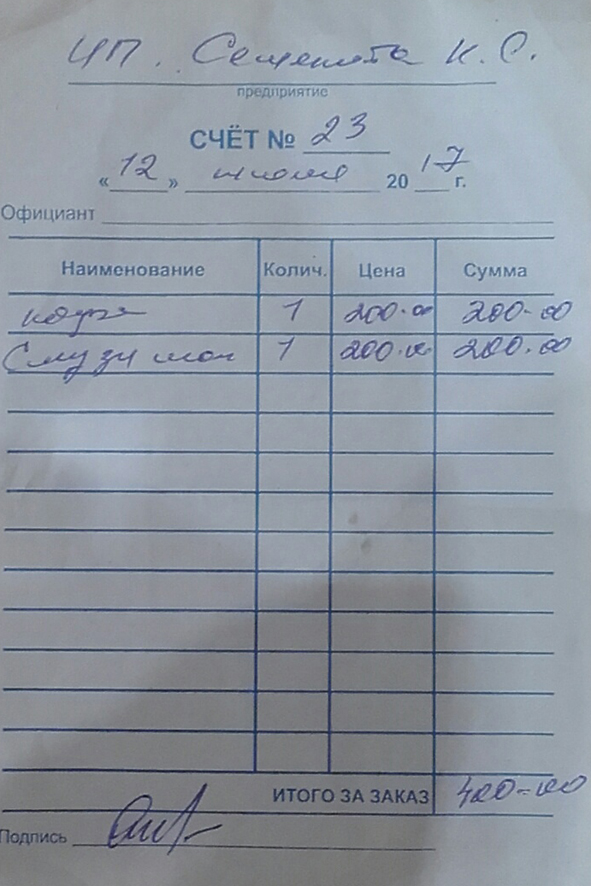 ИП. Семенюта К. С.
предприятие
СЧЁТ № 23
«12» июля 2017 г.
Официант
Наименование Колич. Цена Сумма
кофе 1 200-00 200-00
Смузи 1 200-00 200-00
ИТОГО ЗА ЗАКАЗ 400-00
Подпись